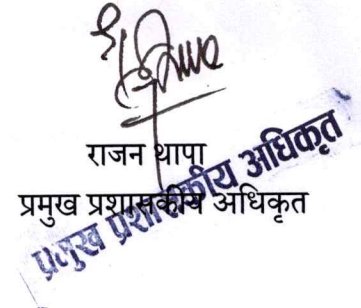 राजन थापा
प्रमुख प्रशासकीय अधिकृत
प्रमुख प्रशासकीय अधिकृत